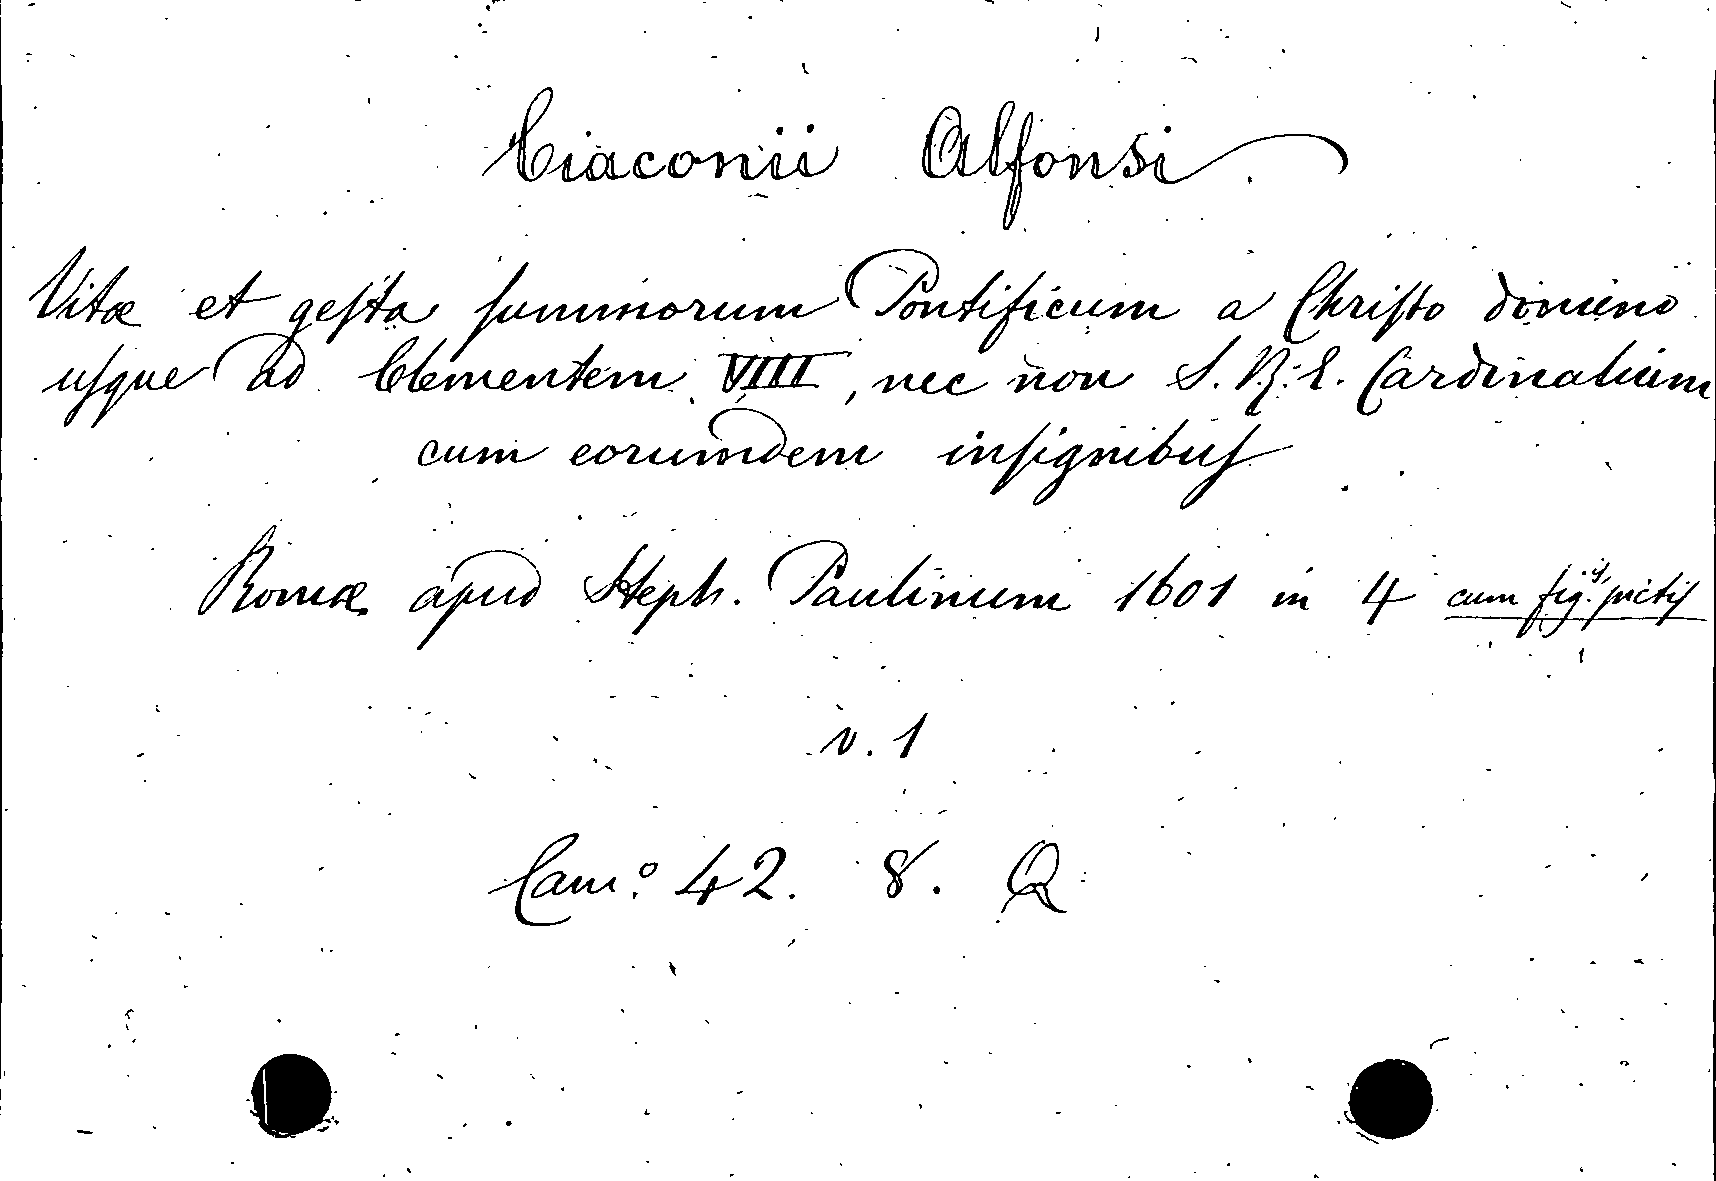 Ciaconii Alfonsi
Vitæ et geſta ſummorum Pontificum a Chriſto domino
uſque ad Clementem VIII, nec non S. R. E. Cardinalium
cum eorumdem inſignibuſ
Romæ apud Steph. Paulinum 1601 in 4 cum fig.ˢ pictiſ
v. 1
Cam.º 42. 8. Q